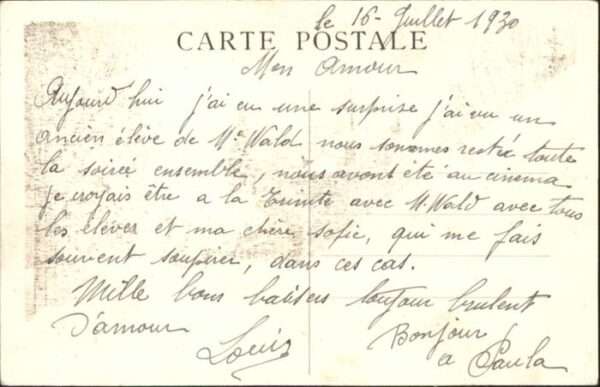 le 16 - Juillet 1930
CARTE POSTALE
Mon Amour
Aujourd hui j'ai eu une surprise j'ai vu un
ancien élève de Mr Wald nous sommes resté toute
la soireé ensemble, nous avont été au cinema
je croyais être a la avec M. Wald avec tous
les élèves et ma chère sofie, qui me fais
souvent soupirer, dans ces cas.
Mille bons baisers toujour brulent
d'amour
Louis
Bonjour
a Paula